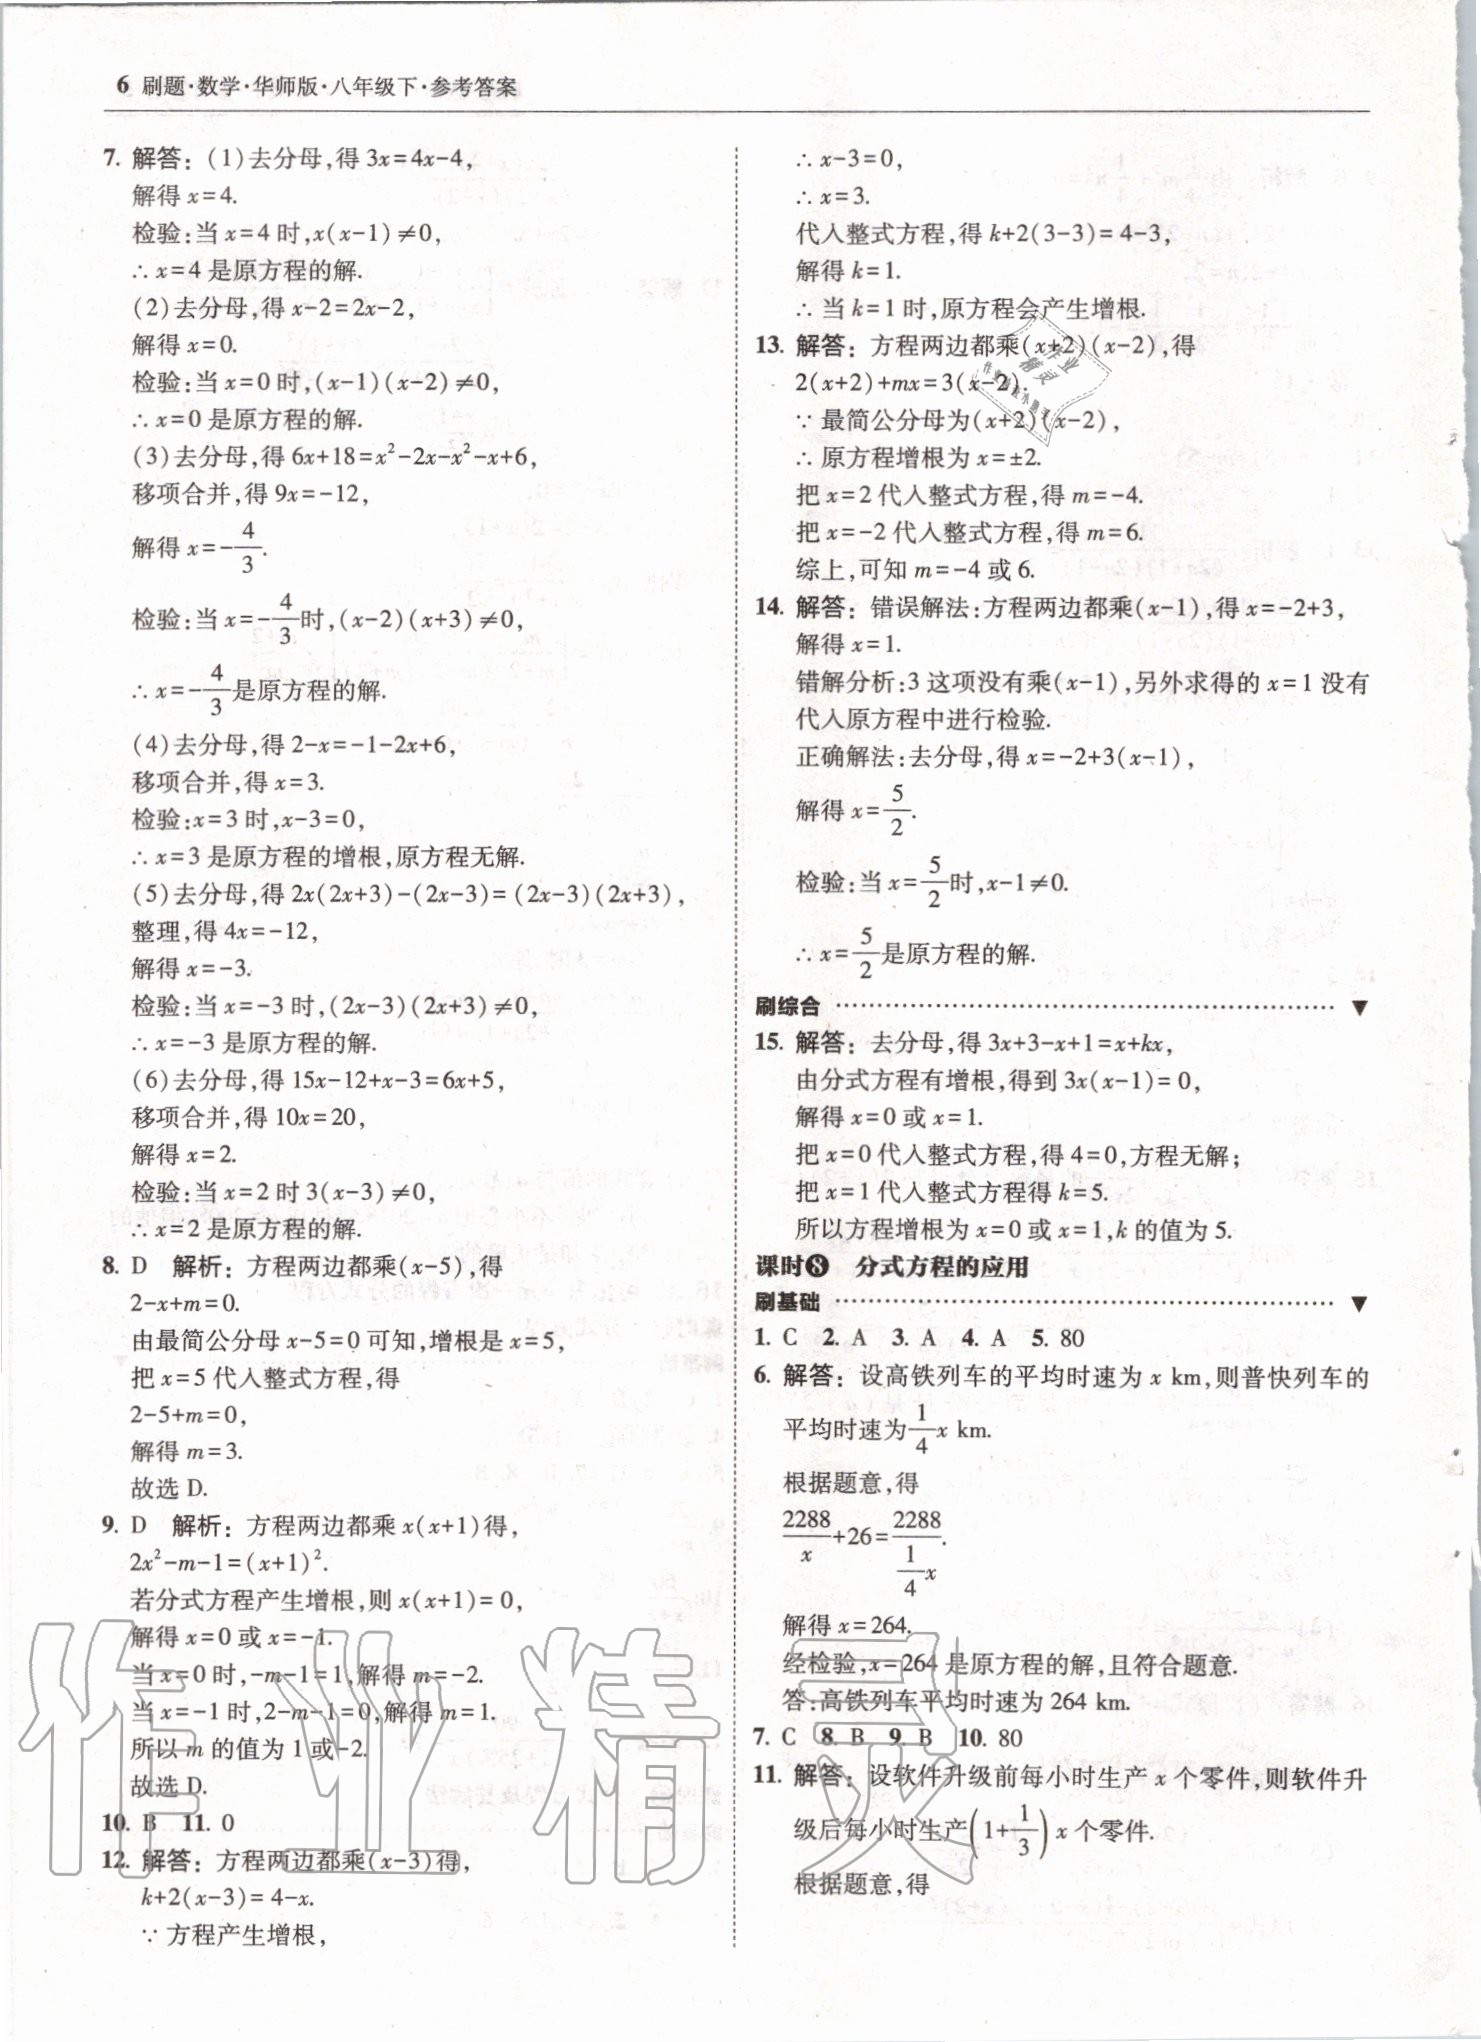 6 刷题·数学·华师版·八年级下·参考答案
7. 解答：(1)去分母,得 3x=4x-4,
解得 x=4.
检验:当 x=4 时,x(x-1)≠0,
∴ x=4 是原方程的解.
(2)去分母,得 x-2=2x-2,
解得 x=0.
检验:当 x=0 时,(x-1)(x-2)≠0,
∴ x=0 是原方程的解.
(3)去分母,得 6x+18=x²-2x-x²-x+6,
移项合并,得 9x=-12,
解得 x=-4/3.
检验:当 x=-4/3时,(x-2)(x+3)≠0,
∴ x=-4/3是原方程的解.
(4)去分母,得 2-x=-1-2x+6,
移项合并,得 x=3.
检验:x=3 时,x-3=0,
∴ x=3 是原方程的增根,原方程无解.
(5)去分母,得 2x(2x+3)-(2x-3)=(2x-3)(2x+3),
整理,得 4x=-12,
解得 x=-3.
检验:当 x=-3 时,(2x-3)(2x+3)≠0,
∴ x=-3 是原方程的解.
(6)去分母,得 15x-12+x-3=6x+5,
移项合并,得 10x=20,
解得 x=2.
检验:当 x=2 时 3(x-3)≠0,
∴ x=2 是原方程的解.
8. D 解析：方程两边都乘(x-5),得
2-x+m=0.
由最简公分母 x-5=0 可知,增根是 x=5,
把 x=5 代入整式方程,得
2-5+m=0,
解得 m=3.
故选 D.
9. D 解析：方程两边都乘 x(x+1)得,
2x²-m-1=(x+1)².
若分式方程产生增根,则 x(x+1)=0,
解得 x=0 或 x=-1.
当 x=0 时,-m-1=1,解得 m=-2.
当 x=-1 时,2-m-1=0,解得 m=1.
所以 m 的值为 1 或-2.
故选 D.
10. B 11. 0
12. 解答：方程两边都乘(x-3)得,
k+2(x-3)=4-x.
∵ 方程产生增根,
∴ x-3=0,
∴ x=3.
代入整式方程,得 k+2(3-3)=4-3,
解得 k=1.
∴ 当 k=1 时,原方程会产生增根.
13. 解答：方程两边都乘(x+2)(x-2),得
2(x+2)+mx=3(x-2).
∵ 最简公分母为(x+2)(x-2),
∴ 原方程增根为 x=±2.
把 x=2 代入整式方程,得 m=-4.
把 x=-2 代入整式方程,得 m=6.
综上,可知 m=-4 或 6.
14. 解答：错误解法:方程两边都乘(x-1),得 x=-2+3,
解得 x=1.
错解分析:3 这项没有乘(x-1),另外求得的 x=1 没有
代入原方程中进行检验.
正确解法:去分母,得 x=-2+3(x-1),
解得 x=5/2.
检验:当 x=5/2时,x-1≠0.
∴ x=5/2是原方程的解.
刷综合
15. 解答：去分母,得 3x+3-x+1=x+kx,
由分式方程有增根,得到 3x(x-1)=0,
解得 x=0 或 x=1.
把 x=0 代入整式方程,得 4=0,方程无解;
把 x=1 代入整式方程得 k=5.
所以方程增根为 x=0 或 x=1,k 的值为 5.
课时❽ 分式方程的应用
刷基础
1. C 2. A 3. A 4. A 5. 80
6. 解答：设高铁列车的平均时速为 x km,则普快列车的
平均时速为1/4x km.
根据题意,得
2288/x+26=2288/(1/4x).
解得 x=264.
经检验,x=264 是原方程的解,且符合题意.
答:高铁列车平均时速为 264 km.
7. C 8. B 9. B 10. 80
11. 解答：设软件升级前每小时生产 x 个零件,则软件升
级后每小时生产(1+1/3)x 个零件.
根据题意,得
作业精灵